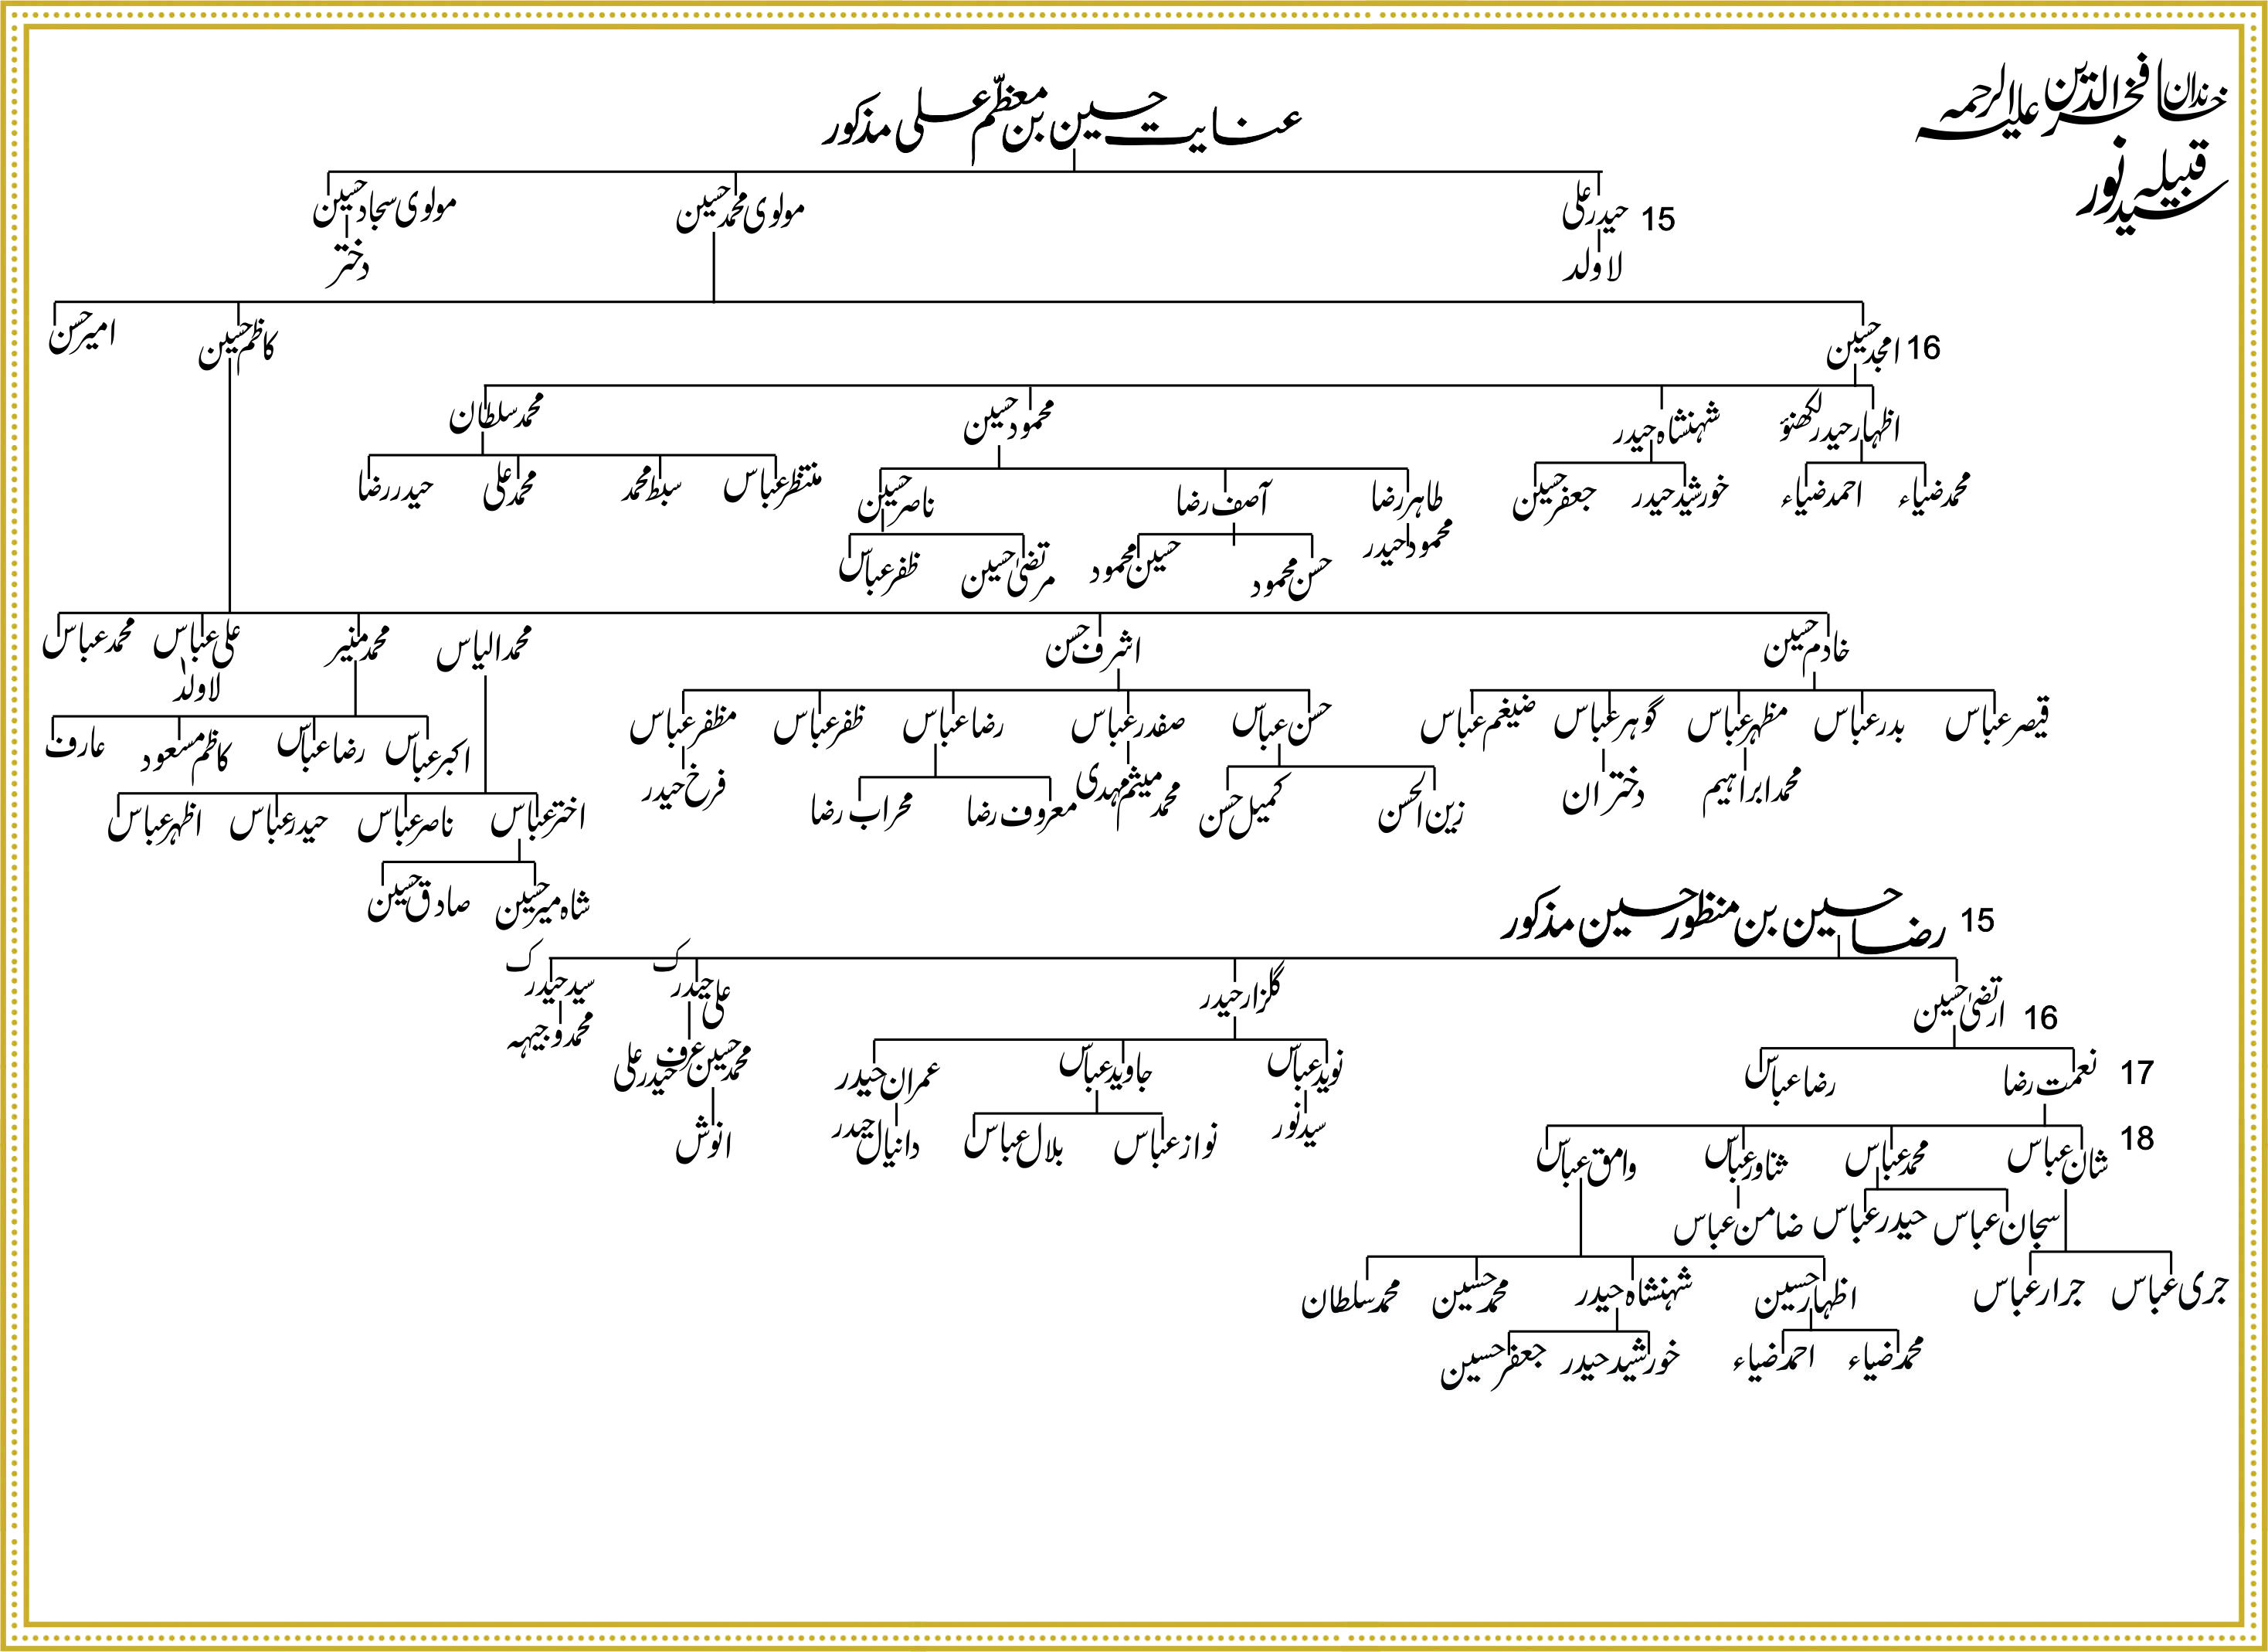 خاندان فخرالدین علیہ الرحمہ
قبیلہ سید نور
عنایت حسین بن معظّم علی مذکور
15 حیدر علی مولوی محمد حسین مولوی سجاد حسین
لا ولد دختر
16 امجد حسین کاظم حسین امیر حسن
اظہار حیدر لکھنؤ شہنشاہ حیدر محمود حسین محمد سلطان
محمد ضیاء احمد ضیاء خورشید حیدر جعفر حسین طاہر رضا آصف رضا ناصر حسین منتظر عباس سبط محمد محمد علی حیدر رضا
محمود حیدر حسن محمود حسین محمود مرتضیٰ حسین ظفر عباس
خادم حسین اشرف حسن محمد الیاس محمد منیر علی عباس محمد عباس
لا ولد
قیصر عباس بدر عباس مظہر عباس گوہر عباس ضیغم عباس حسن عباس صفدر عباس رضا عباس ظفر عباس مظفر عباس اکبر عباس رضا عباس کاظم مسعود عارف
محمد ابراہیم دختران زین الحسن کمیل حسن محمد میثم مہدی معروف رضا محراب رضا فرخ حیدر
اختر عباس ناصر عباس حیدر عباس اظہر عباس
شاہ میر حسین صادق حسین
15 رضا حسین بن منظور حسین مذکور
16 ارتضیٰ حسین گلزار حیدر علی حیدر ک سید حیدر ک
17 نعمت رضا رضا عباس نوید عباس جاوید عباس عمران حیدر محمد حسین عرف حیدر علی محمد وجیہہ
18 شان عباس محمد عباس ثناور عباس وامق عباس سید نور نواز عباس بلال عباس دانیال حیدر انوش
سبحان عباس حیدر عباس ضامن عباس
جری عباس جرار عباس اظہار حسین شہنشاہ حیدر محمد حسین محمد سلطان
محمد ضیاء احمد ضیاء خورشید حیدر جعفر حسین